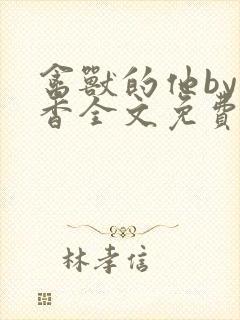 禽獸的他by
香全文免費
林孝信